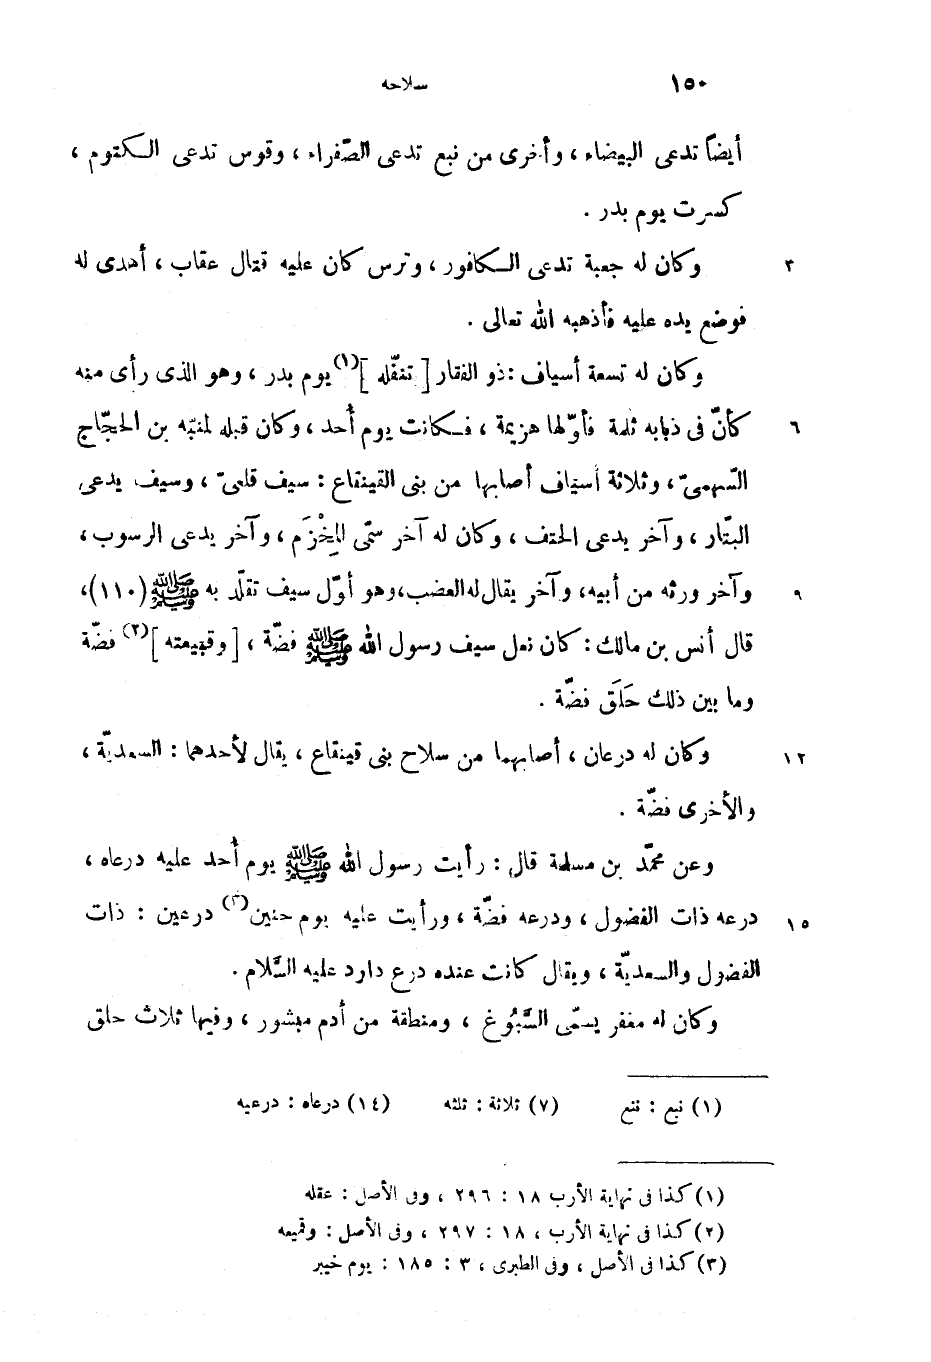 ١٥٠ سلاحه
أيضاً تدعى البيضاء ، وأخرى من نبع تدعى الصّفراء ، وقوس تدعى الكتوم ،
كسرت يوم بدر .
٣ وكان له جعبة تدعى الكافور ، وترس كان عليه تمثال عقاب ، أهدى له
فوضع يده عليه فأذهبه الله تعالى .
وكان له تسعة أسياف : ذو الفقار [ تنفّله ](١) يوم بدر ، وهو الذى رأى منه
٦ كأنّ فى ذبابه ثلمة فأوّلها هزيمة ، فكانت يوم أُحد ، وكان قبله لمنبّه بن الحجّاج
السّهمىّ ، وثلاثة أسياف أصابها من بنى القينقاع : سيف قلعىّ ، وسيف يدعى
البتّار ، وآخر يدعى الحتف ، وكان له آخر سمّى المِخْزَم ، وآخر يدعى الرسوب ،
٩ وآخر ورثه من أبيه، وآخر يقال له العضب، وهو أوّل سيف تقلّد به ﷺ (١١٠)،
قال أنس بن مالك : كان نعل سيف رسول الله ﷺ فضّة ، [ وقبيعته ](٢) فضّة
وما بين ذلك حَلَق فضّة .
١٢ وكان له درعان ، أصابهما من سلاح بنى قينقاع ، يقال لأحدهما : السعديّة ،
والأخرى فضّة .
وعن محمّد بن مسلمة قال : رأيت رسول الله ﷺ يوم أُحد عليه درعاه ،
١٥ درعه ذات الفضول ، ودرعه فضّة ، ورأيت عليه يوم حنين(٣) درعين : ذات
الفضول والسعديّة ، ويقال كانت عنده درع دارد عليه السَّلام .
وكان له مغفر يسمّى السَّبُوغ ، ومنطقة من أدم مبشور ، وفيها ثلاث حلق
(١) نبع : ننع (٧) ثلاثة : ثلثه (١٤) درعاه : درعيه
(١) كذا فى نهاية الأرب ١٨ : ٢٩٦ ، وفى الأصل : عقله
(٢) كذا فى نهاية الأرب ، ١٨ : ٢٩٧ ، وفى الأصل : وقميعه
(٣) كذا فى الأصل ، وفى الطبرى ، ٣ : ١٨٥ : يوم خيبر